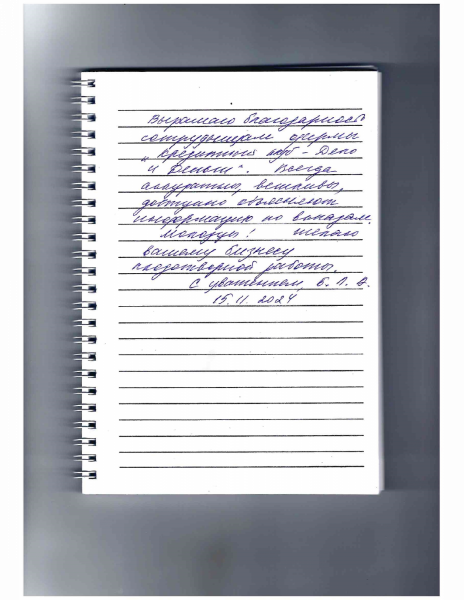 Выражаю благодарность
сотрудницам фирмы
„Кредитный клуб - Дело
и Деньги". Всегда
аккуратны, вежливы,
доступно объясняют
информацию по вкладам.
Молодцы! Желаю
вашему бизнесу
плодотворной работы.
С уважением, Б. Л. А.
15.11.2024